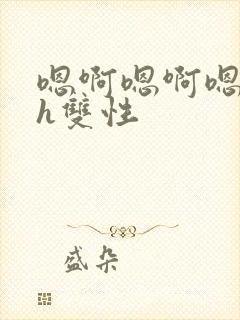 嗯啊嗯啊嗯
h雙性
盛朵